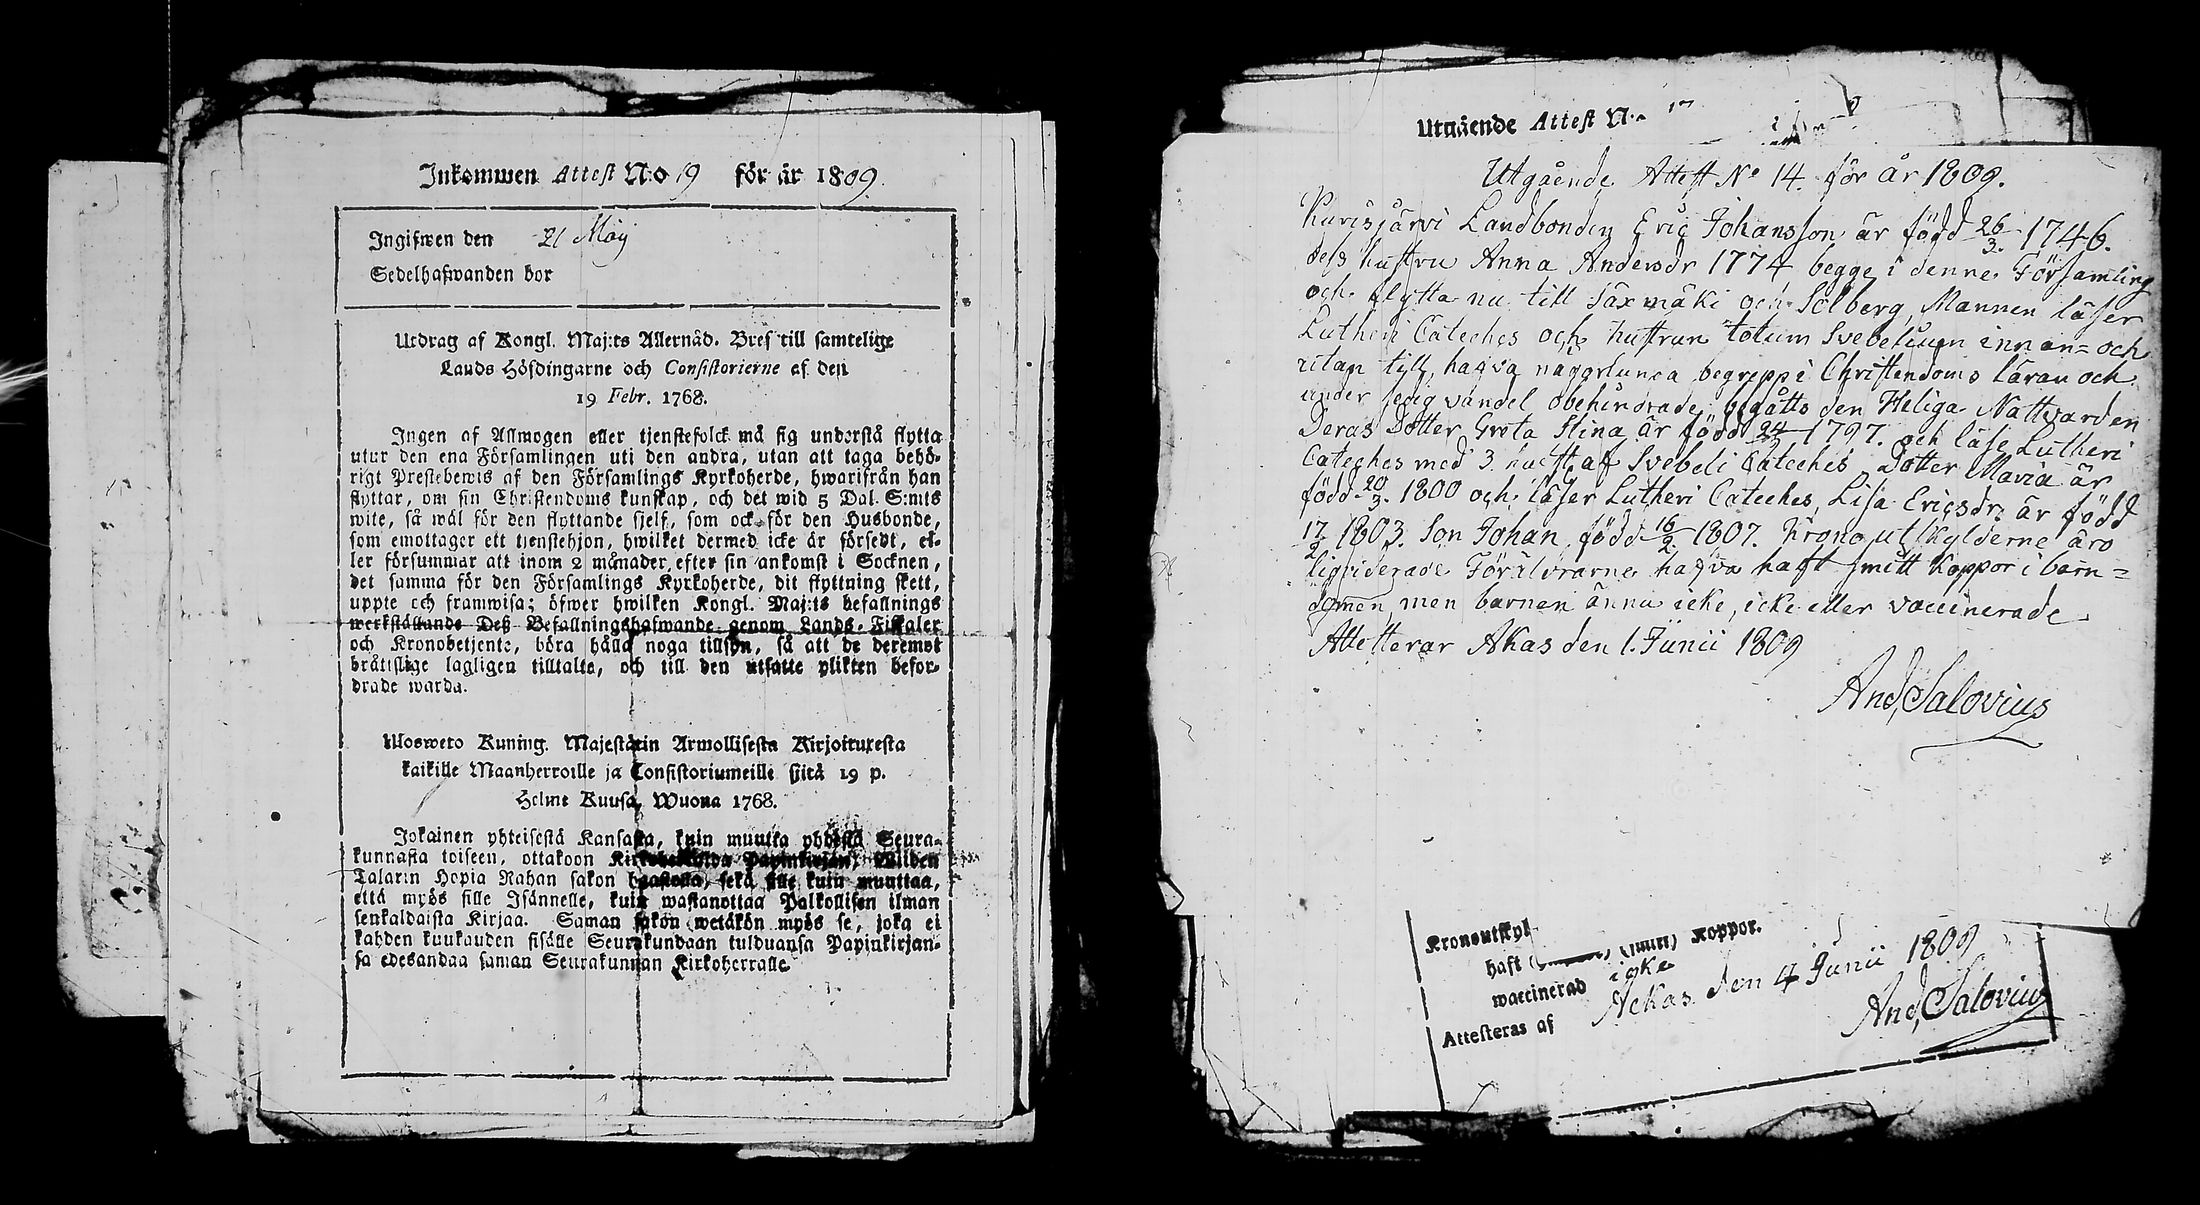 Inkommen Attest N:o 19 för år 1809.
Ingifwen den 21 Maij
Sedelhafwanden bor
Utdrag af Kongl. Maj:ts Allernåd. Bref till samtelige
Lands Höfdingarne och Consistorierne af den
19 Febr. 1768.
Ingen af Allmogen eller tjenstefolck må sig understå flytta
utur den ena Församlingen uti den andra, utan att taga behö-
rigt Prestebewis af den Församlings Kyrkoherde, hwarifrån han
flyttar, om sin Christendoms kunskap, och det wid 5 Dal. S:mts
wite, så wäl för den flyttande sjelf, som ock för den Husbonde,
som emottager ett tjenstehjon, hwilket dermed icke är försedt, el-
ler försummar att inom 2 månader efter sin ankomst i Socknen,
det samma för den Församlings Kyrkoherde, dit flyttning skett,
uppte och framwisa; öfwer hwilken Kongl. Maj:ts befallnings
werkställande Deß Befallningshafwande genom Lands-Fiskaler
och Kronobetjente, böra hålla noga tillsyn, så att de deremot
bråttslige lagligen tilltalte, och till den utsatte plikten befor-
drade warda.
Ulosweto Kuning. Majestätin Armollisesta Kirjoituxesta
kaikille Maanherroille ja Consistoriumeille siitä 19 p.
Helme Kuusa, Wuona 1768.
Jokainen yhteisestä Kansasta, kuin muutta yhdestä Seura-
kunnasta toiseen, ottakoon Kirkoherralda Papinkirjan, Wiiden
Talarin Hopia Rahan sakon haastolla, sekä sille kuin muuttaa,
että myös sille Isännelle, kuin wastanottaa Palkollisen ilman
senkaldaista Kirjaa. Saman sakon wetäkön myös se, joka ei
kahden kuukauden sisälle Seurakundaan tulduansa Papinkirjan-
sa edesandaa saman Seurakunnan Kirkoherralle.
Utgående Attest N:o 17
Utgående Attest No 14. för år 1809.
Kurisjärvi Landbonden Eric Johansson är född 26/3. 1746.
dess hustru Anna Andersdr 1774 begge i denne Församling
och flytta nu till Saxmäki och Solberg, Mannen läser
Lutheri Cateches och hustrun totum Svebelium innan= och
utan till, hafva någorlunda begrepp i Christendoms läran och
under ledig vandel obehindrade begåtts den Heliga Nattvarden
Deras Dotter Greta Stina är född 24/2 1797. och läse Lutheri
Cateches med 3. hufst. af Svebeli Cateches, Dotter Maria är
född 20/3. 1800 och läser Lutheri Cateches, Lisa Ericsdr. är född
17/2 1803. Son Johan född 16/2 1807. Kronoutskylderne äro
liqviderade Föräldrarne hafva haft smitt Koppor i barn=
domen, men barnen ännu icke, icke eller vaccinerade
Attesterar Akas den 1. Junii 1809
And, Salovius
Kronoutskyl-
haft (smitt) Koppor.
waccinerad icke
Attesteras af Ackas den 4 Junii 1809
And, Salovius